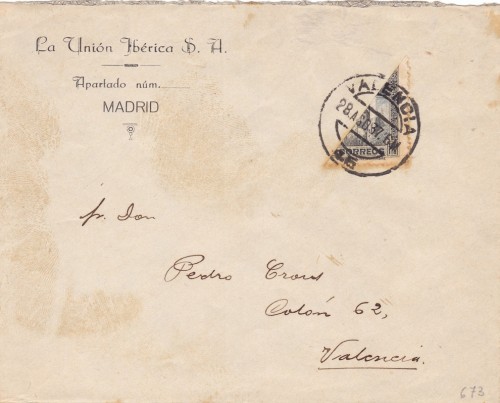 La Unión Ibérica S. A.
Apartado núm.
MADRID
VALENCIA
CORREOS
Don
Pedro
Colón 62,
Valencia.
673